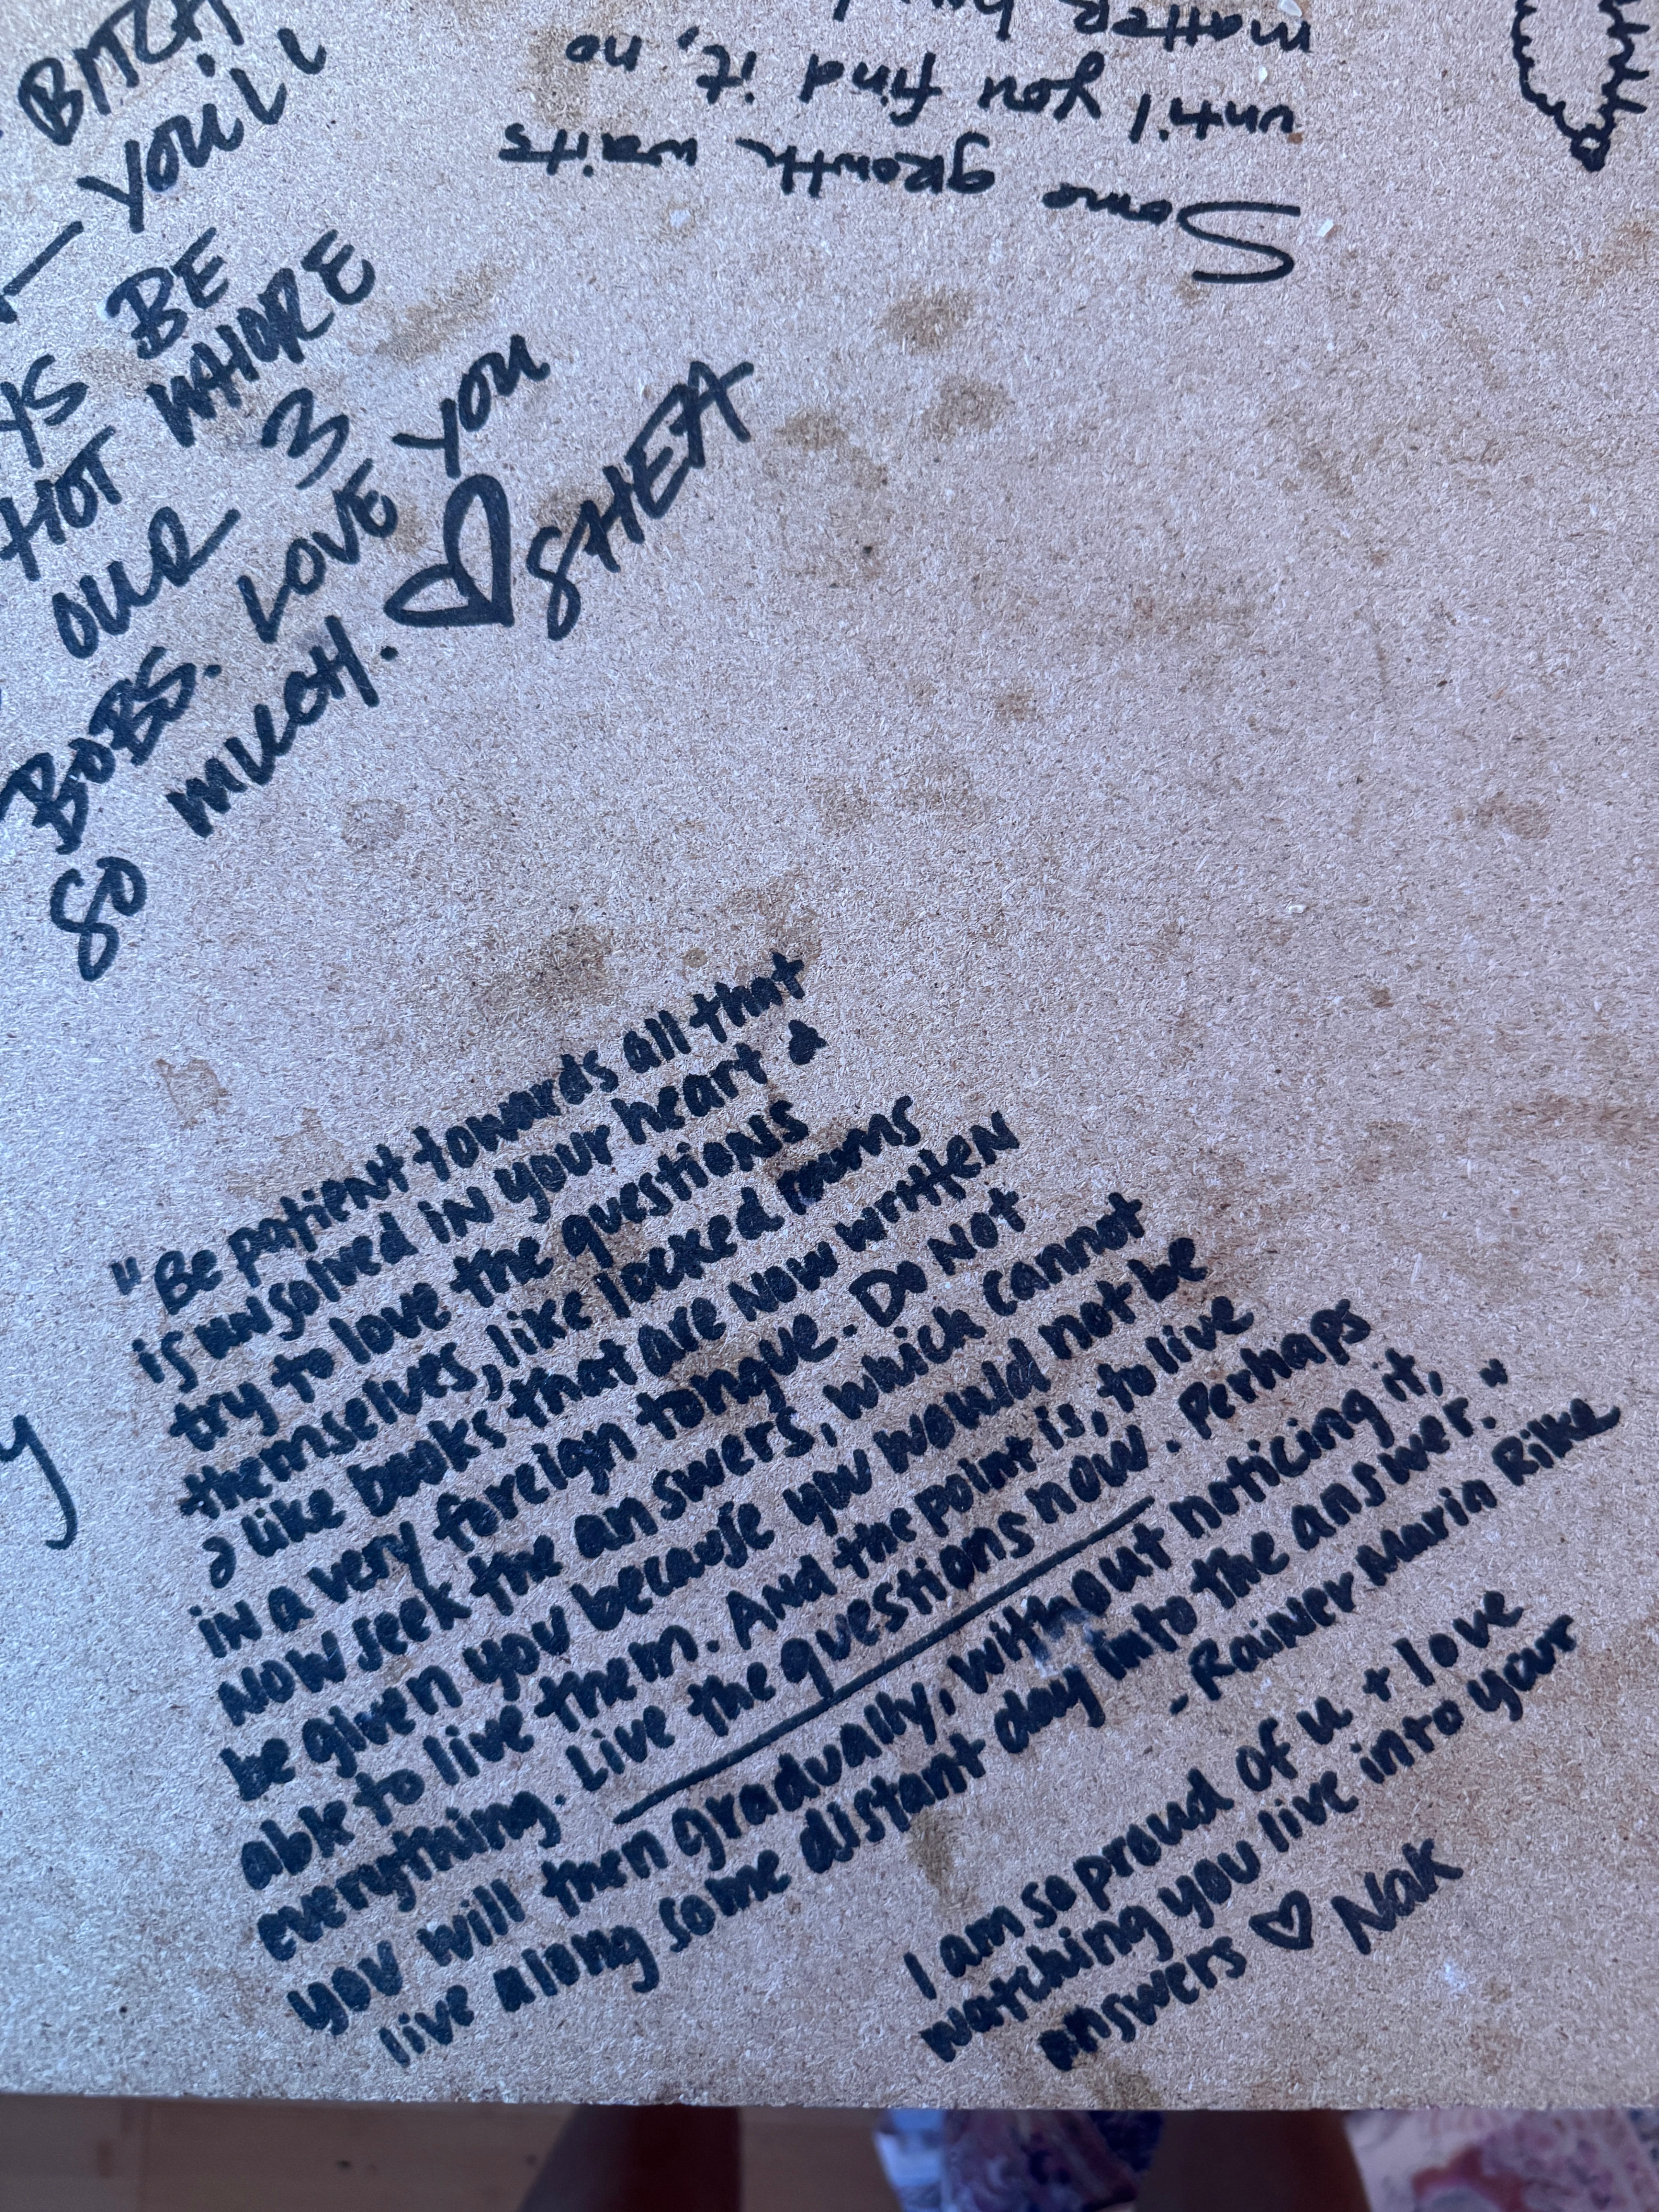 BITCH
— YOU'LL
YS BE
HOT WHORE
OUR 3
BOBS. LOVE YOU
SO MUCH. ♡ SHEA
Some growth waits
until you find it, no
matter
"Be patient towards all that
is unsolved in your heart &
try to love the questions
themselves, like locked rooms
& like books that are now written
in a very foreign tongue. Do not
now seek the answers, which cannot
be given you because you would not be
able to live them. And the point is, to live
everything. Live the questions now. Perhaps
you will then gradually, without noticing it,
live along some distant day into the answer."
- Rainer Maria Rilke
I am so proud of u + love
watching you live into your
answers ♡ Nak
y